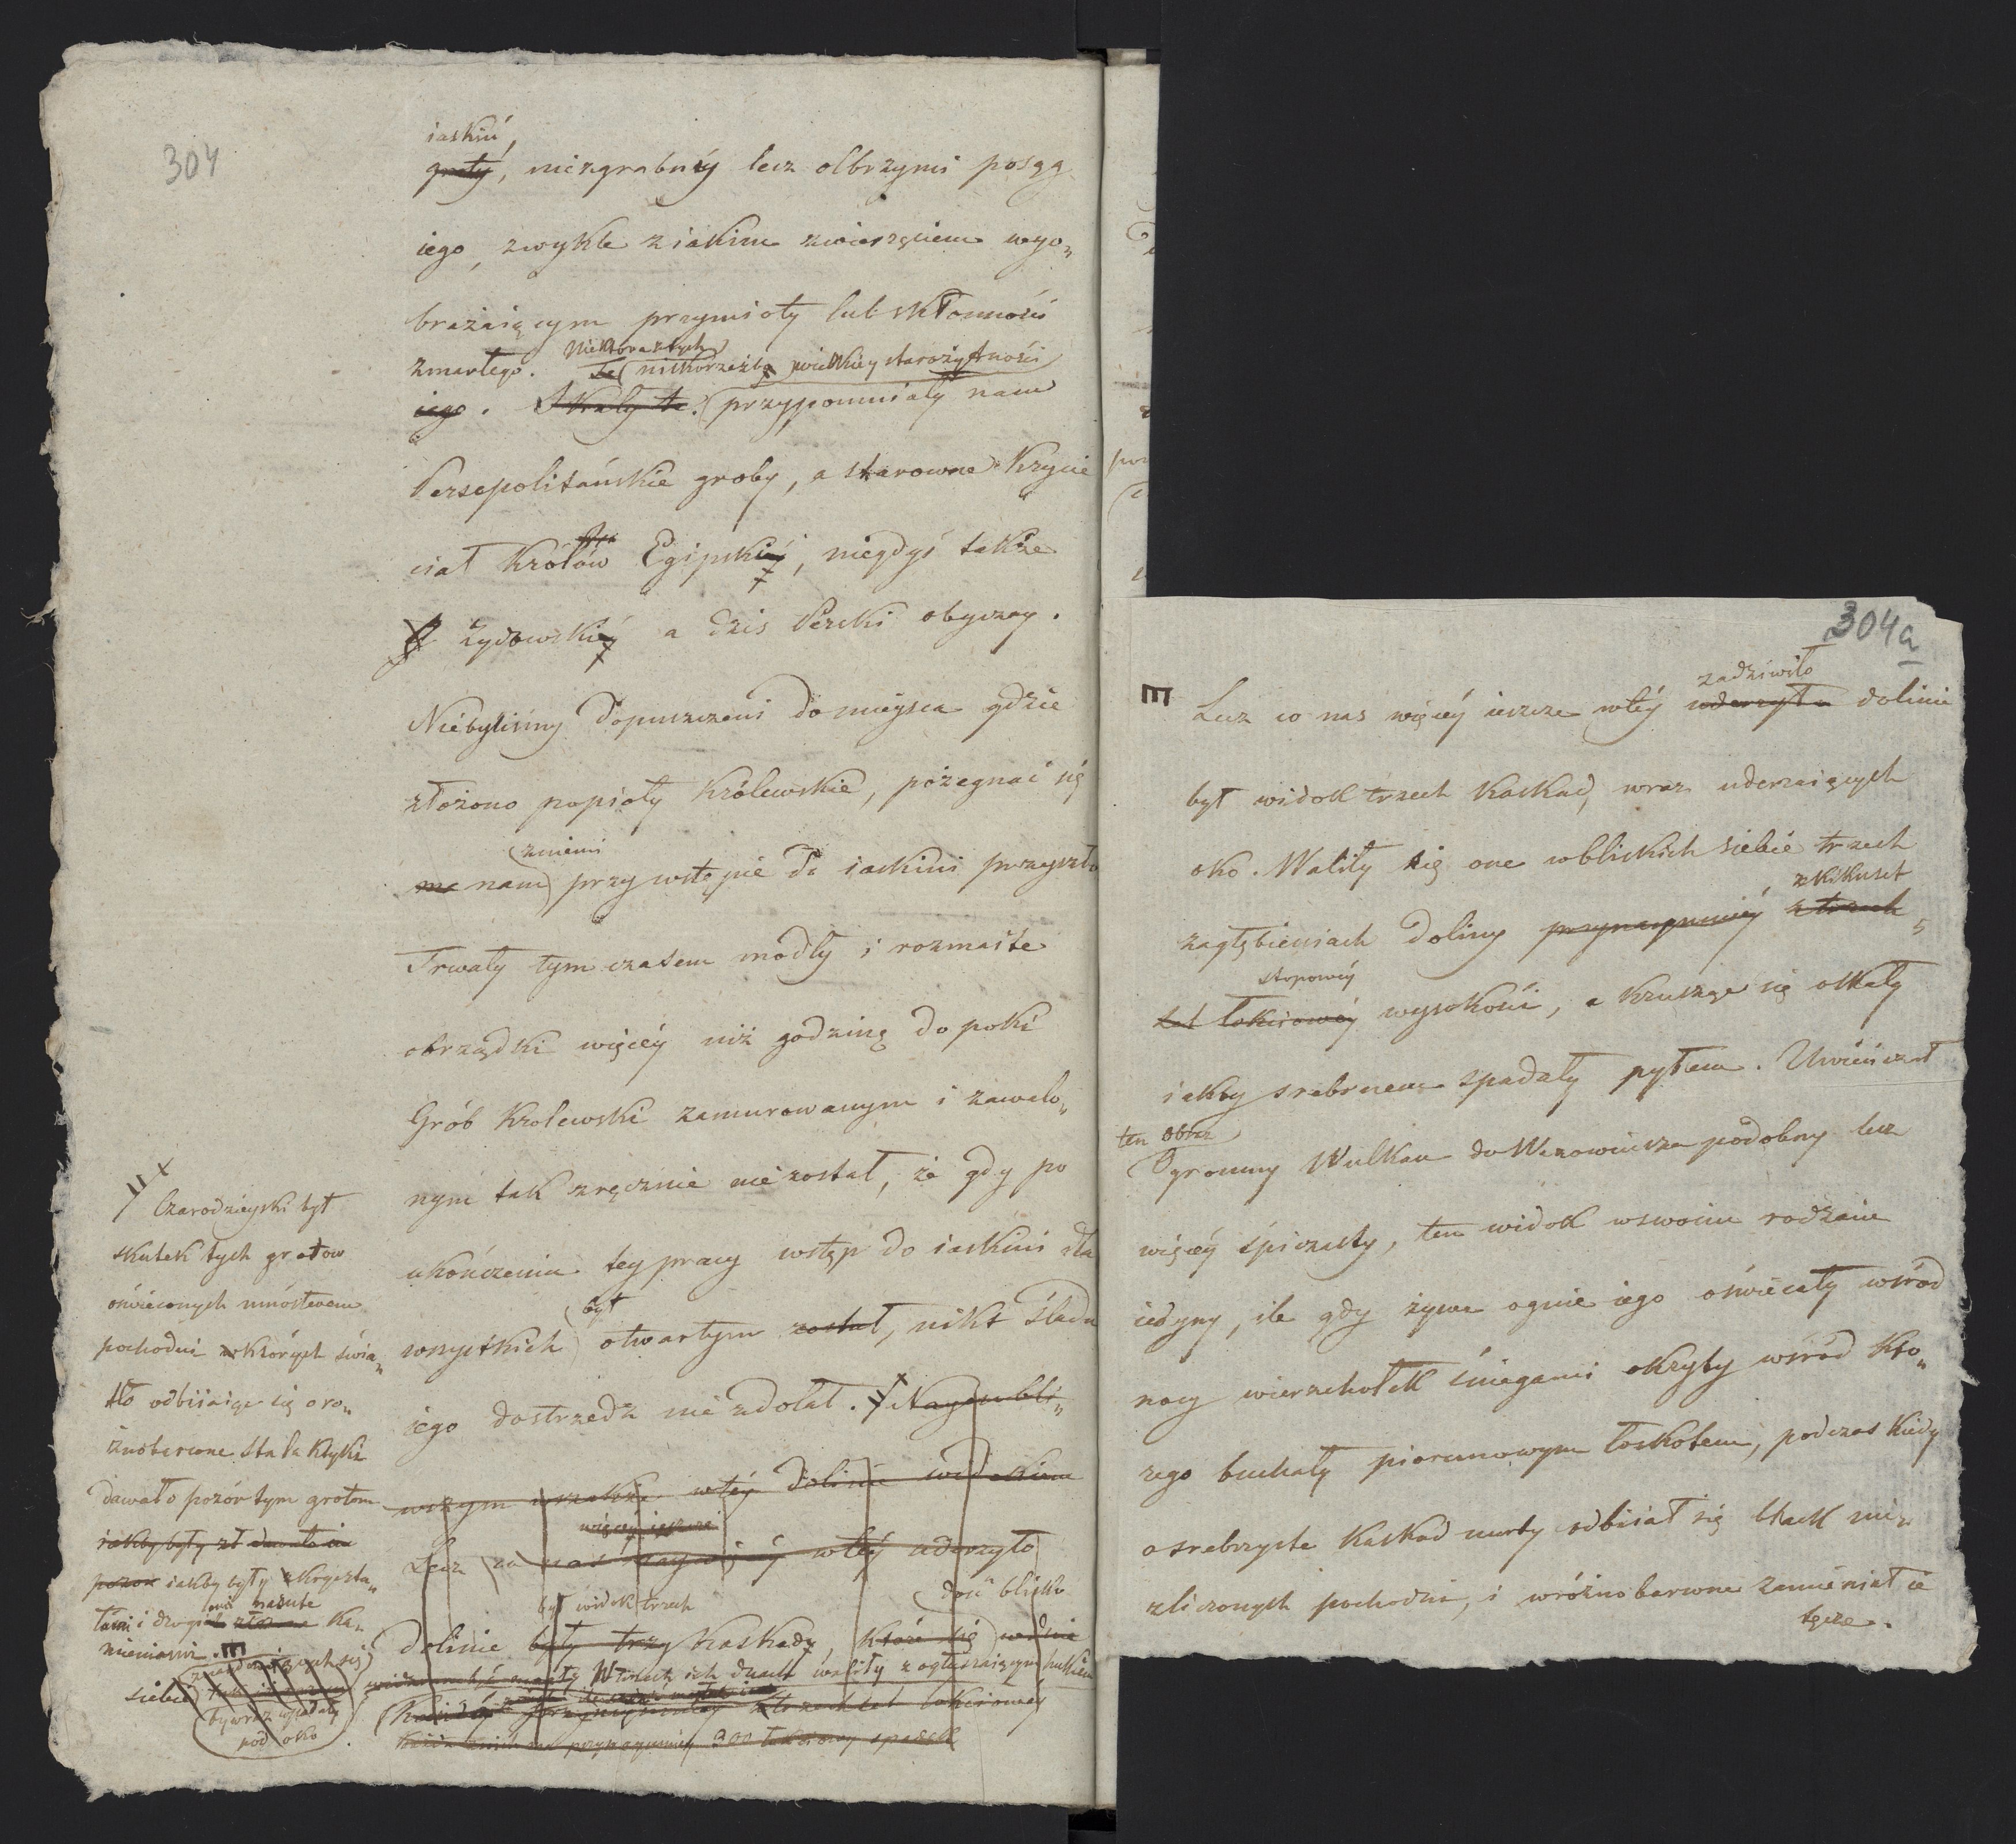 304
iaskiń,
groty, niezgrabny lecz olbrzymi posąg
iego, zwykle z iakim zwierzęciem wyo„
brażaiącym przymioty lub skłonności
Niektóre z tych
zmarłego. Te niskorzeźby wielkiey starożytności
iego. Skały te. przypomniały nam
Persepolitańskie groby, a starowne krycie
ciał Królów Egipski, niegdyś także
Żydowski a dziś Perski obyczay.
Niebyliśmy dopuszczeni do mieysca gdzie
złożono popioły Królewskie, pożegnać się
z niemi
nam przy wstępie do iaskini przyszło
Trwały tym czasem modły i rozmaite
obrządki więcéy niż godzinę do poki
Grób Krolewski zamurowanym i zawalo„
nym tak zręcznie nie został, że gdy po
ukończeniu tey pracy wstęp do iaskini dla
był
wszystkich otwartym został, nikt śladu
iego dostrzedz nie zdołał. Naypowabli„
wszym w téy Dolinie widokiem
więcey ieszcze
Lecz co nas naywięcéy w téy uderzyło
był widok trzech
dość blisko
dolinie były trzy Kaskady, które się
w trzech ich waliły z ogłuszaiącym hukiem
z trzechset łokciowéy
przynaymniey 300 łokciowy spadek
Czarodzieyski był
skutek tych grotow
oświeconych mnóstwem
pochodni których świa„
tło odbiiaiąc się o ro„
żnobarwne Stalaktyki
dawało pozór tym grotom
iakby były
pozor iakby były z Kryszta„
nasute
łami i drogiemi Ka„
mieniami.
siebie
by wraz wpadały
pod oko
304a
zadziwiło
Lecz co nas więcéy ieszcze w téy uderzyło dolinie
był widok trzech Kaskad, wraz uderzaiących
oko. Waliły się one w bliskich siebie trzech
z kilkuset
zagłębieniach doliny przynaymniéy z trzech„
stopowéy
set łokciowéy wysokości, a krusząc się o skały
iakby srebrnem spadały pyłem. Uwieńczał
ten obraz
Ogromny Wulkan do Wezowiusza podobny lecz
więcéy śpiczasty, ten widok w swoim rodzaiu
iedyny, ile gdy żywe ognie iego oświecały wśród
nocy wierzchołek śniegami okryty wśród kto„
rego buchały piorunowym łoskotem, podczas kiedy
o srebrzyste Kaskad nurty odbiiał się blask nie„
zliczonych pochodni, i w różnobarwne zamieniał ie
tęcze.